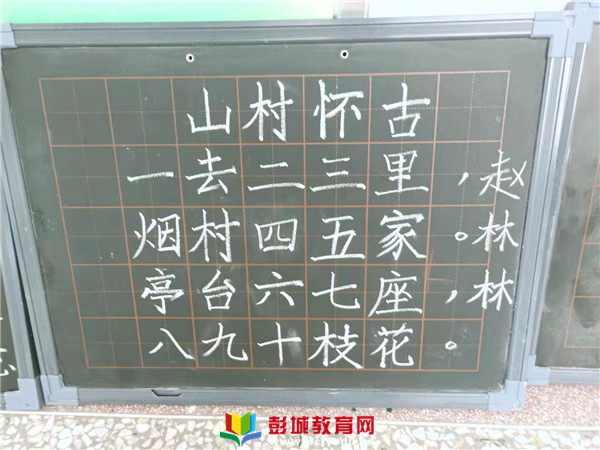 山村怀古
一去二三里，
烟村四五家。
亭台六七座，
八九十枝花。
赵林林
彭城教育网